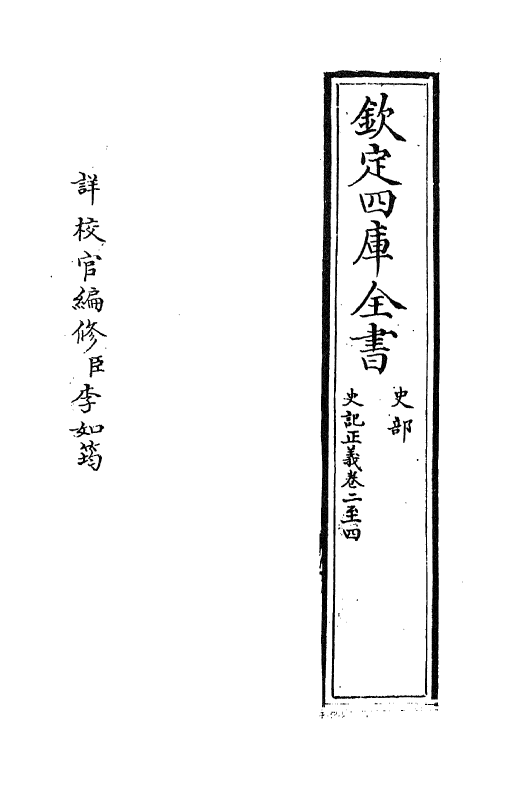 欽定四庫全書
史部
史記正義卷二至四
詳校官編修臣李如筠